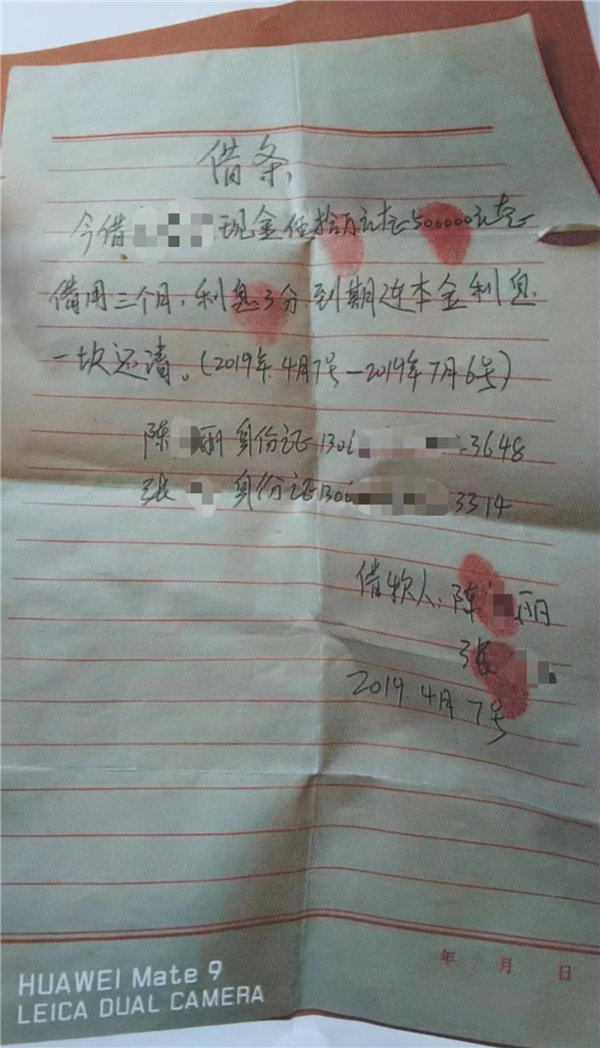 借条
今借 现金伍拾万元整500000元整
借用三个月,利息3分到期连本金利息
一次还清。(2019年.4月7号—2019年7月6号)
陈 丽身份证130 3648
张 身份证130 3314
借款人:陈 丽
张
2019.4月7号
年 月 日
HUAWEI Mate 9
LEICA DUAL CAMERA